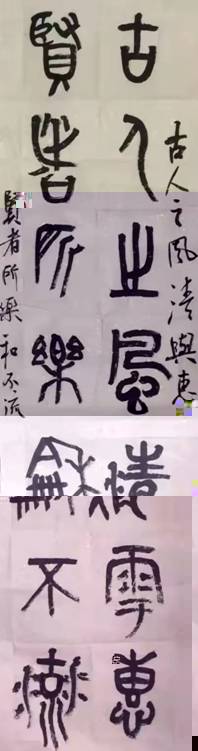 古人之風清與惠
古人之風清雩惠
賢者所樂龢不流
賢者所樂和不流